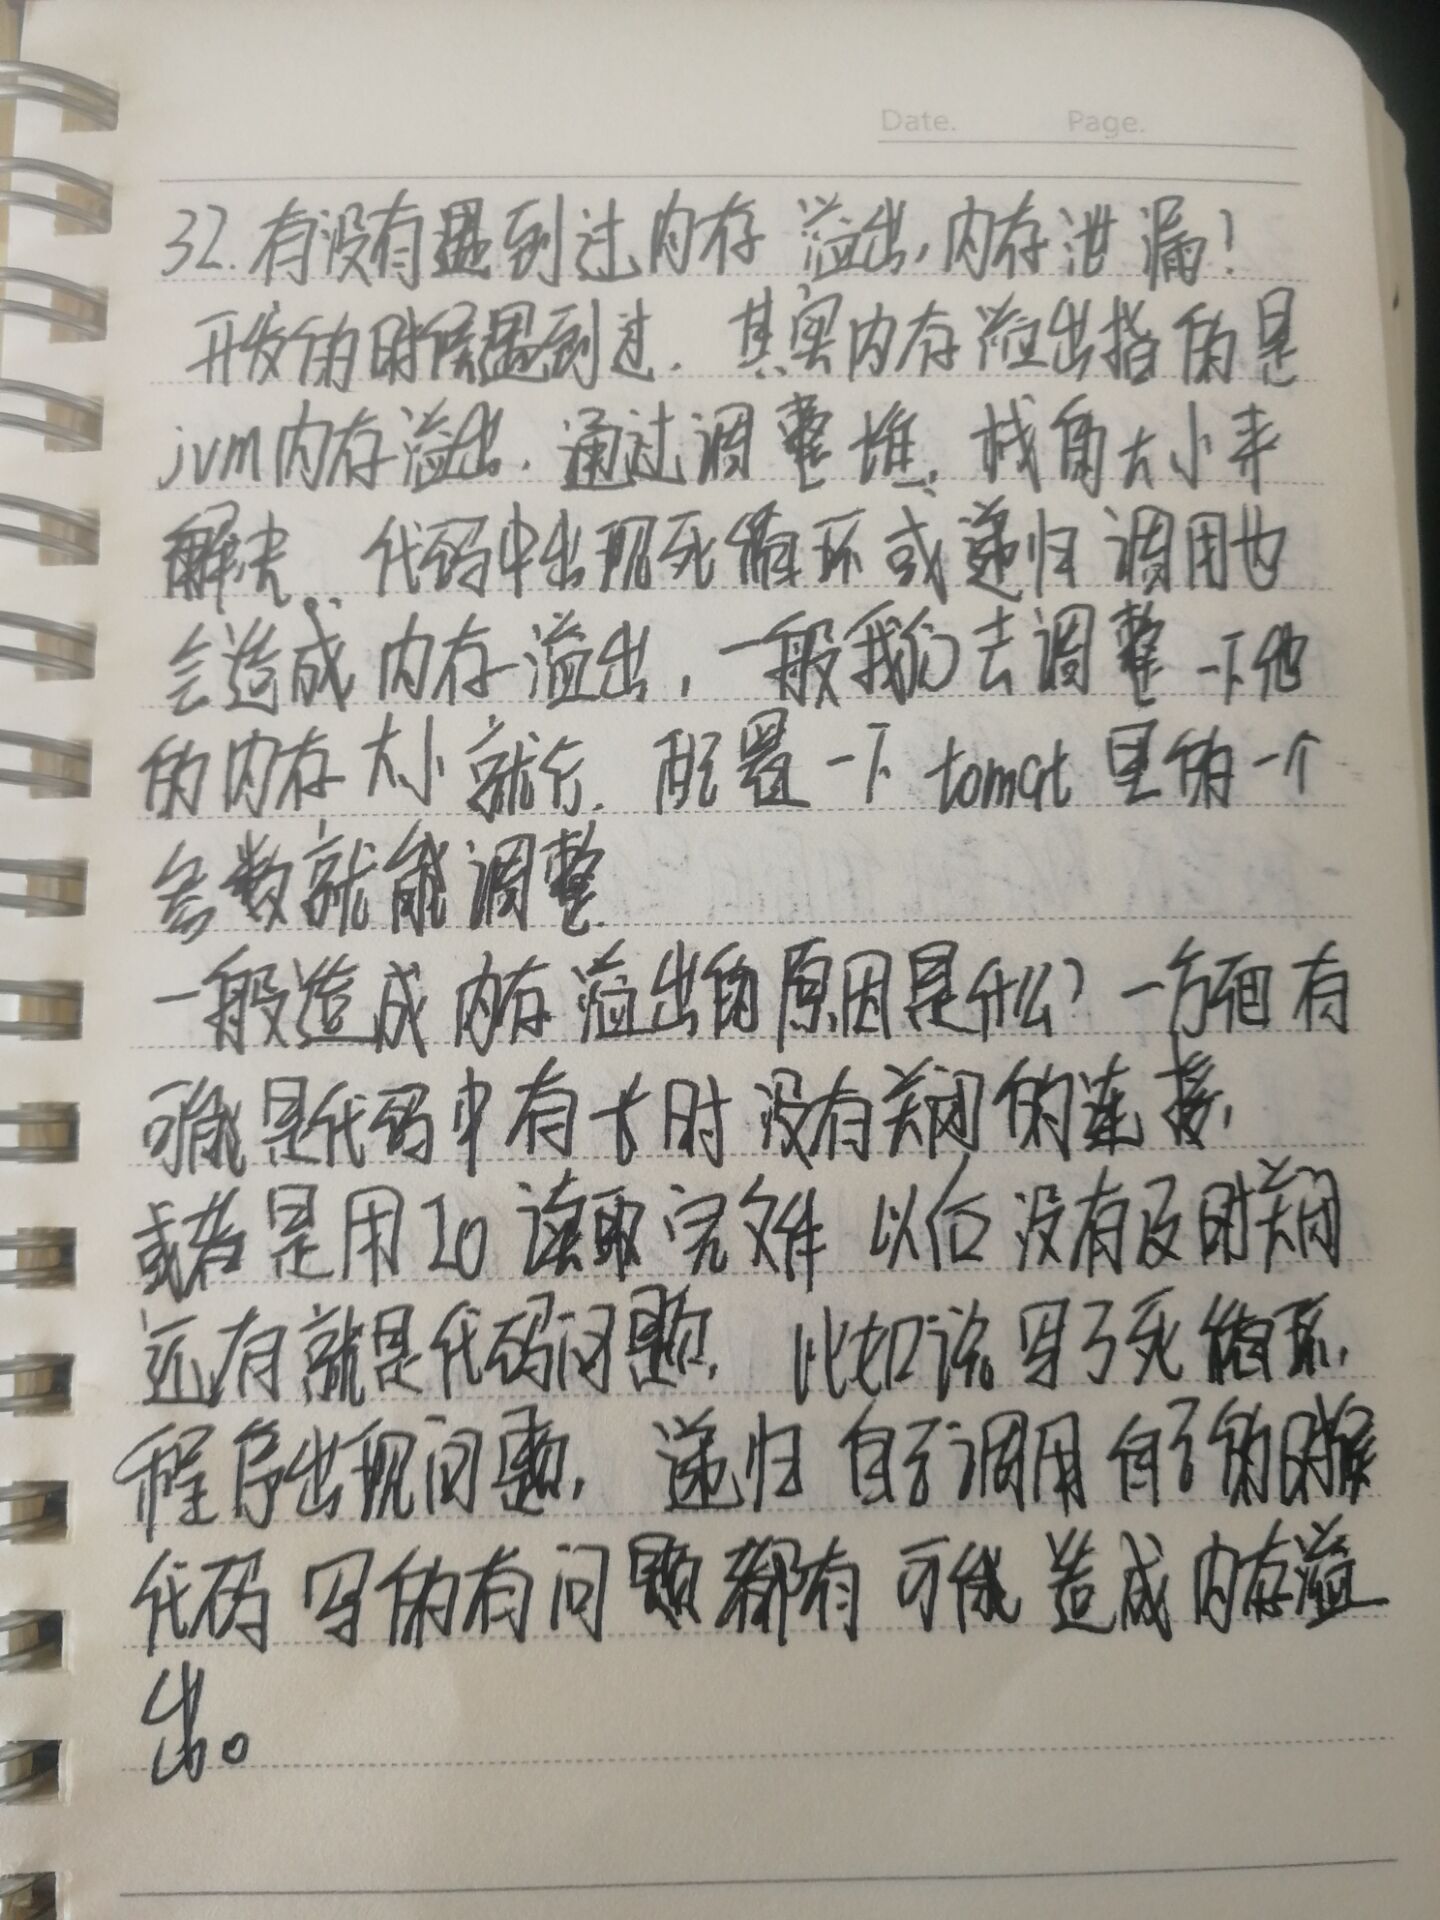 Date. Page.
32.有没有遇到过内存溢出,内存泄漏?
开发的时候遇到过.其实内存溢出指的是
jvm内存溢出.通过调整堆.栈的大小来
解决.代码中出现死循环或递归调用也
会造成内存溢出,一般我们去调整一下他
的内存大小就行.配置一下tomcat里的一个
参数就能调整.
一般造成内存溢出的原因是什么?一方面有
可能是代码中有长时没有关闭的连接,
或者是用IO读取完文件以后没有及时关闭
还有就是代码问题.比如说写了死循环.
程序出现问题.递归自己调用自己的时候
代码写的有问题都有可能造成内存溢
出。